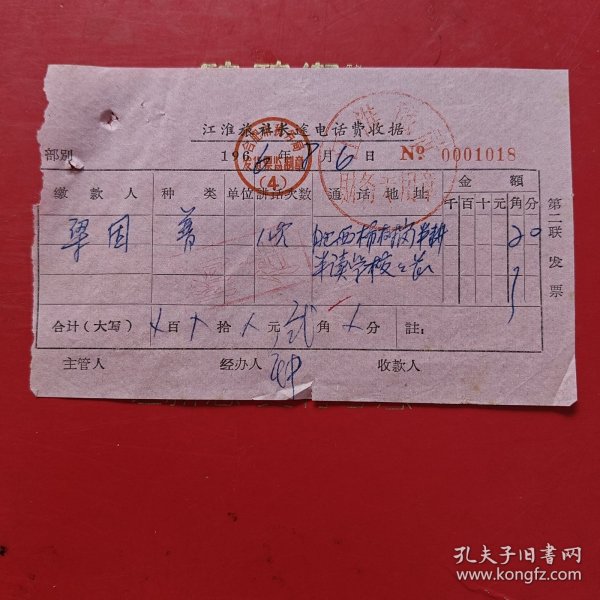 江淮旅社长途电话费收据
部别
1966年7月6日 № 0001018
缴款人 种类 单位 讲话次数 通话地址 金額
千百十元角分
普 1次 肥西柿树岗半耕 20
半读学校
合计(大写) 百 拾 元 弍角 分 註:
主管人 经办人 收款人
第二联发票
(4)
孔夫子旧书网
www.kongfz.com